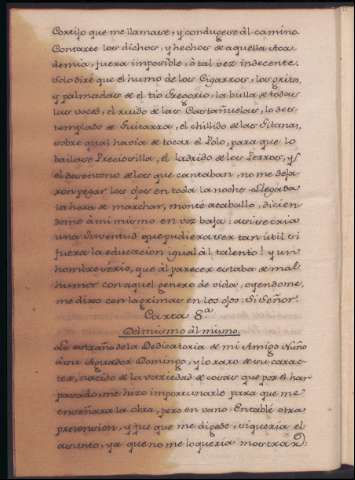 Cortijo que me llamase, y condugese al camino.
Contarte los dichos, y hechos de aquella Aca-
demia, fuera imposible, ò tal vez indecente.
Solo diré que el humo de los Cigarros, los gritos,
y palmadas de el tio Gregorio, la bulla de todas
las voces, el ruido de las Castañuelas, lo des-
templado de Guitarra, el chillido de las Gitanas,
sobre qual havia de tocar el Polo, para que lo
bailase Preciosilla, el ladrido de los Perros, y
el desentono de los que cantaban, no me deja-
ron pegar los ojos en toda la noche. Llegada
la hora de marchar, monté a caballo, dicien-
dome à mi mismo en voz baja: asi se cria
una Juventud que pudiera ser tan util si
fuera la educacion igual àl talento! y un
hombre serio, que àl parecer estaba de mal
humor con aquel genero de vida, oyendome,
me dixo con lagrimas en los ojos: Si Señor.
Carta 8ª
Del mismo àl mismo.
Lo estraño de la Dedicatoria de mi Amigo Nuño
à su Aguador Domingo, y lo raro de su carac-
ter, nacido de la variedad de cosas que por el han
pasado, me hizo importunarle para que me
enseñara la obra, pero en vano. Entablé otra
pretension, y fue que me digese, siquiera el
asunto, ya que no me lo queria mostrar.